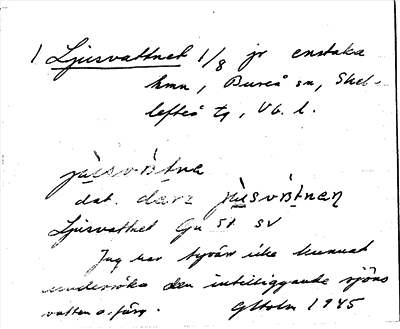 1 Ljusvattnet 1/8 jr enstaka
hmn, Bureå sn, Skel-
lefteå tg, Vb. l.
jùsvàtne
dat. dərə jùsvàtnen
Ljusvattnet Gu St SV
Jag har tyvärr icke kunnat
undersöka den intilliggande sjöns
vatten o. färg. GHolm 1945